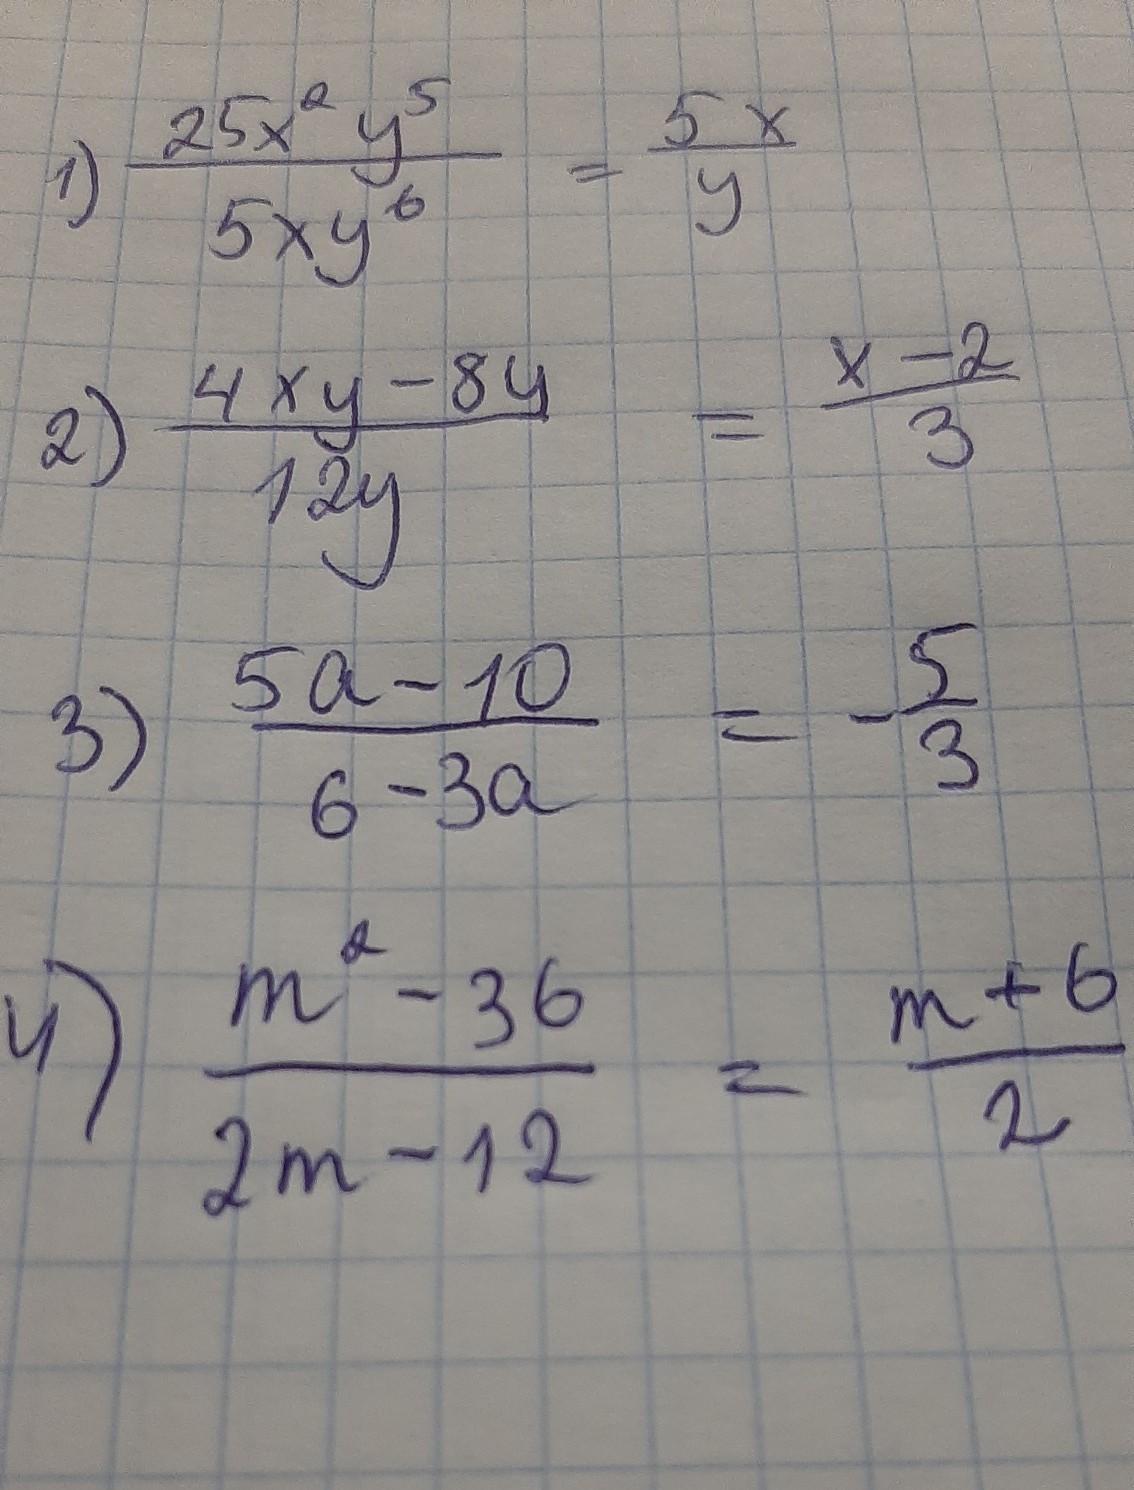 1) 25x²y⁵ / 5xy⁶ = 5x / y
2) 4xy - 8y / 12y = x - 2 / 3
3) 5a - 10 / 6 - 3a = - 5 / 3
4) m² - 36 / 2m - 12 = m + 6 / 2